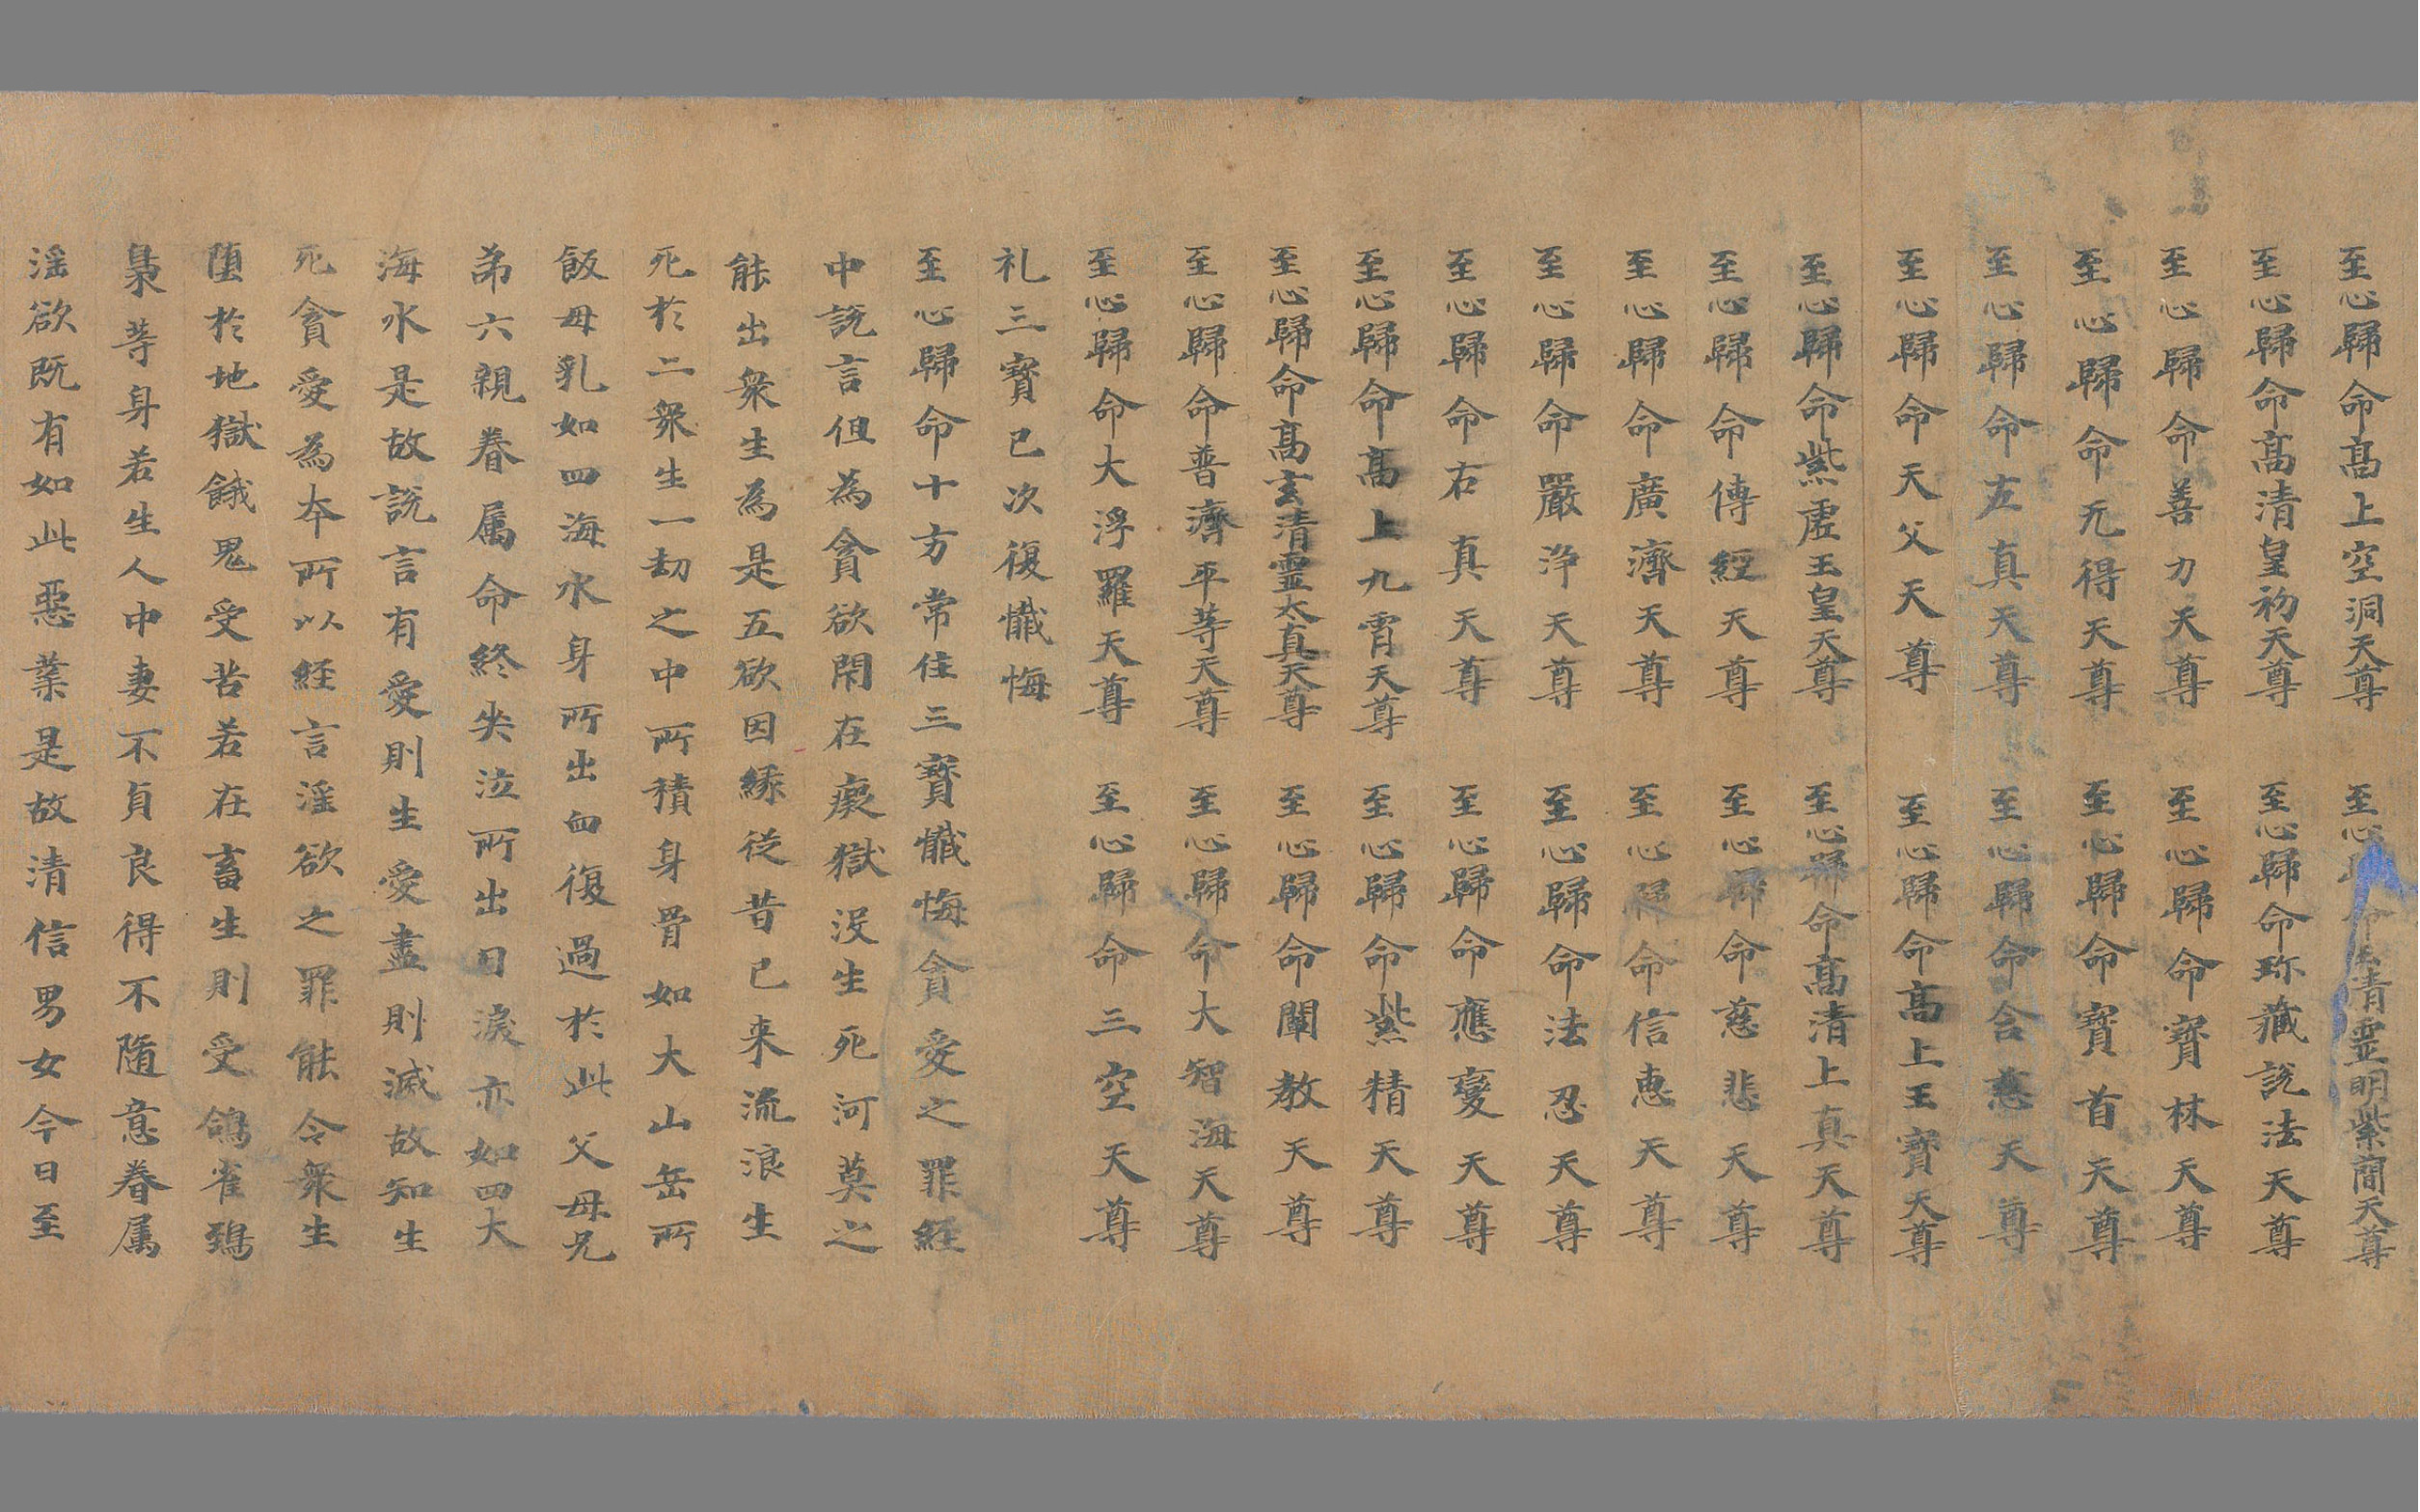 至心歸命高上空洞天尊　至心歸命玄清靈明紫蘭天尊
至心歸命高清皇初天尊　至心歸命珎藏說法天尊
至心歸命善力天尊　至心歸命寶林天尊
至心歸命无得天尊　至心歸命寶首天尊
至心歸命左真天尊　至心歸命含慈天尊
至心歸命天父天尊　至心歸命高上玉寶天尊
至心歸命紫虛玉皇天尊　至心歸命高清上真天尊
至心歸命傳經天尊　至心歸命慈悲天尊
至心歸命廣濟天尊　至心歸命信惠天尊
至心歸命嚴淨天尊　至心歸命法忍天尊
至心歸命右真天尊　至心歸命應變天尊
至心歸命高上九霄天尊　至心歸命紫精天尊
至心歸命高玄清靈太真天尊　至心歸命闡教天尊
至心歸命普濟平等天尊　至心歸命大智海天尊
至心歸命大浮羅天尊　至心歸命三空天尊
礼三寶已次復懺悔
至心歸命十方常住三寶懺悔貪愛之罪經
中說言但為貪欲閇在癡獄沒生死河莫之
能出衆生為是五欲因緣從昔已来流浪生
死於二衆生一劫之中所積身骨如大山岳所
飯母乳如四海水身所出血復過於此父母兄
弟六親眷属命終哭泣所出目淚亦如四大
海水是故說言有愛則生愛盡則滅故知生
死貪愛為夲所以經言淫欲之罪能令衆生
墮於地獄餓鬼受苦若在畜生則受鴿雀鵄
梟等身若生人中妻不貞良得不隨意眷属
淫欲既有如此惡業是故清信男女今日至